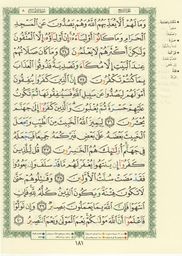 وَمَا لَهُمْ أَلَّا يُعَذِّبَهُمُ اللَّهُ وَهُمْ يَصُدُّونَ عَنِ الْمَسْجِدِ
الْحَرَامِ وَمَا كَانُوا أَوْلِيَاءَهُ إِنْ أَوْلِيَاؤُهُ إِلَّا الْمُتَّقُونَ
وَلَٰكِنَّ أَكْثَرَهُمْ لَا يَعْلَمُونَ ٣٤ وَمَا كَانَ صَلَاتُهُمْ
عِندَ الْبَيْتِ إِلَّا مُكَاءً وَتَصْدِيَةً فَذُوقُوا الْعَذَابَ
بِمَا كُنتُمْ تَكْفُرُونَ ٣٥ إِنَّ الَّذِينَ كَفَرُوا يُنفِقُونَ
أَمْوَالَهُمْ لِيَصُدُّوا عَن سَبِيلِ اللَّهِ فَسَيُنفِقُونَهَا ثُمَّ تَكُونُ
عَلَيْهِمْ حَسْرَةً ثُمَّ يُغْلَبُونَ وَالَّذِينَ كَفَرُوا إِلَىٰ جَهَنَّمَ
يُحْشَرُونَ ٣٦ لِيَمِيزَ اللَّهُ الْخَبِيثَ مِنَ الطَّيِّبِ وَيَجْعَلَ
الْخَبِيثَ بَعْضَهُ عَلَىٰ بَعْضٍ فَيَرْكُمَهُ جَمِيعًا فَيَجْعَلَهُ
فِي جَهَنَّمَ أُولَٰئِكَ هُمُ الْخَاسِرُونَ ٣٧ قُل لِّلَّذِينَ
كَفَرُوا إِن يَنتَهُوا يُغْفَرْ لَهُم مَّا قَدْ سَلَفَ وَإِن يَعُودُوا
فَقَدْ مَضَتْ سُنَّتُ الْأَوَّلِينَ ٣٨ وَقَاتِلُوهُمْ حَتَّىٰ
لَا تَكُونَ فِتْنَةٌ وَيَكُونَ الدِّينُ كُلُّهُ لِلَّهِ فَإِنِ
انتَهَوْا فَإِنَّ اللَّهَ بِمَا يَعْمَلُونَ بَصِيرٌ ٣٩ وَإِن تَوَلَّوْا
فَاعْلَمُوا أَنَّ اللَّهَ مَوْلَاكُمْ نِعْمَ الْمَوْلَىٰ وَنِعْمَ النَّصِيرُ ٤٠
١٨١